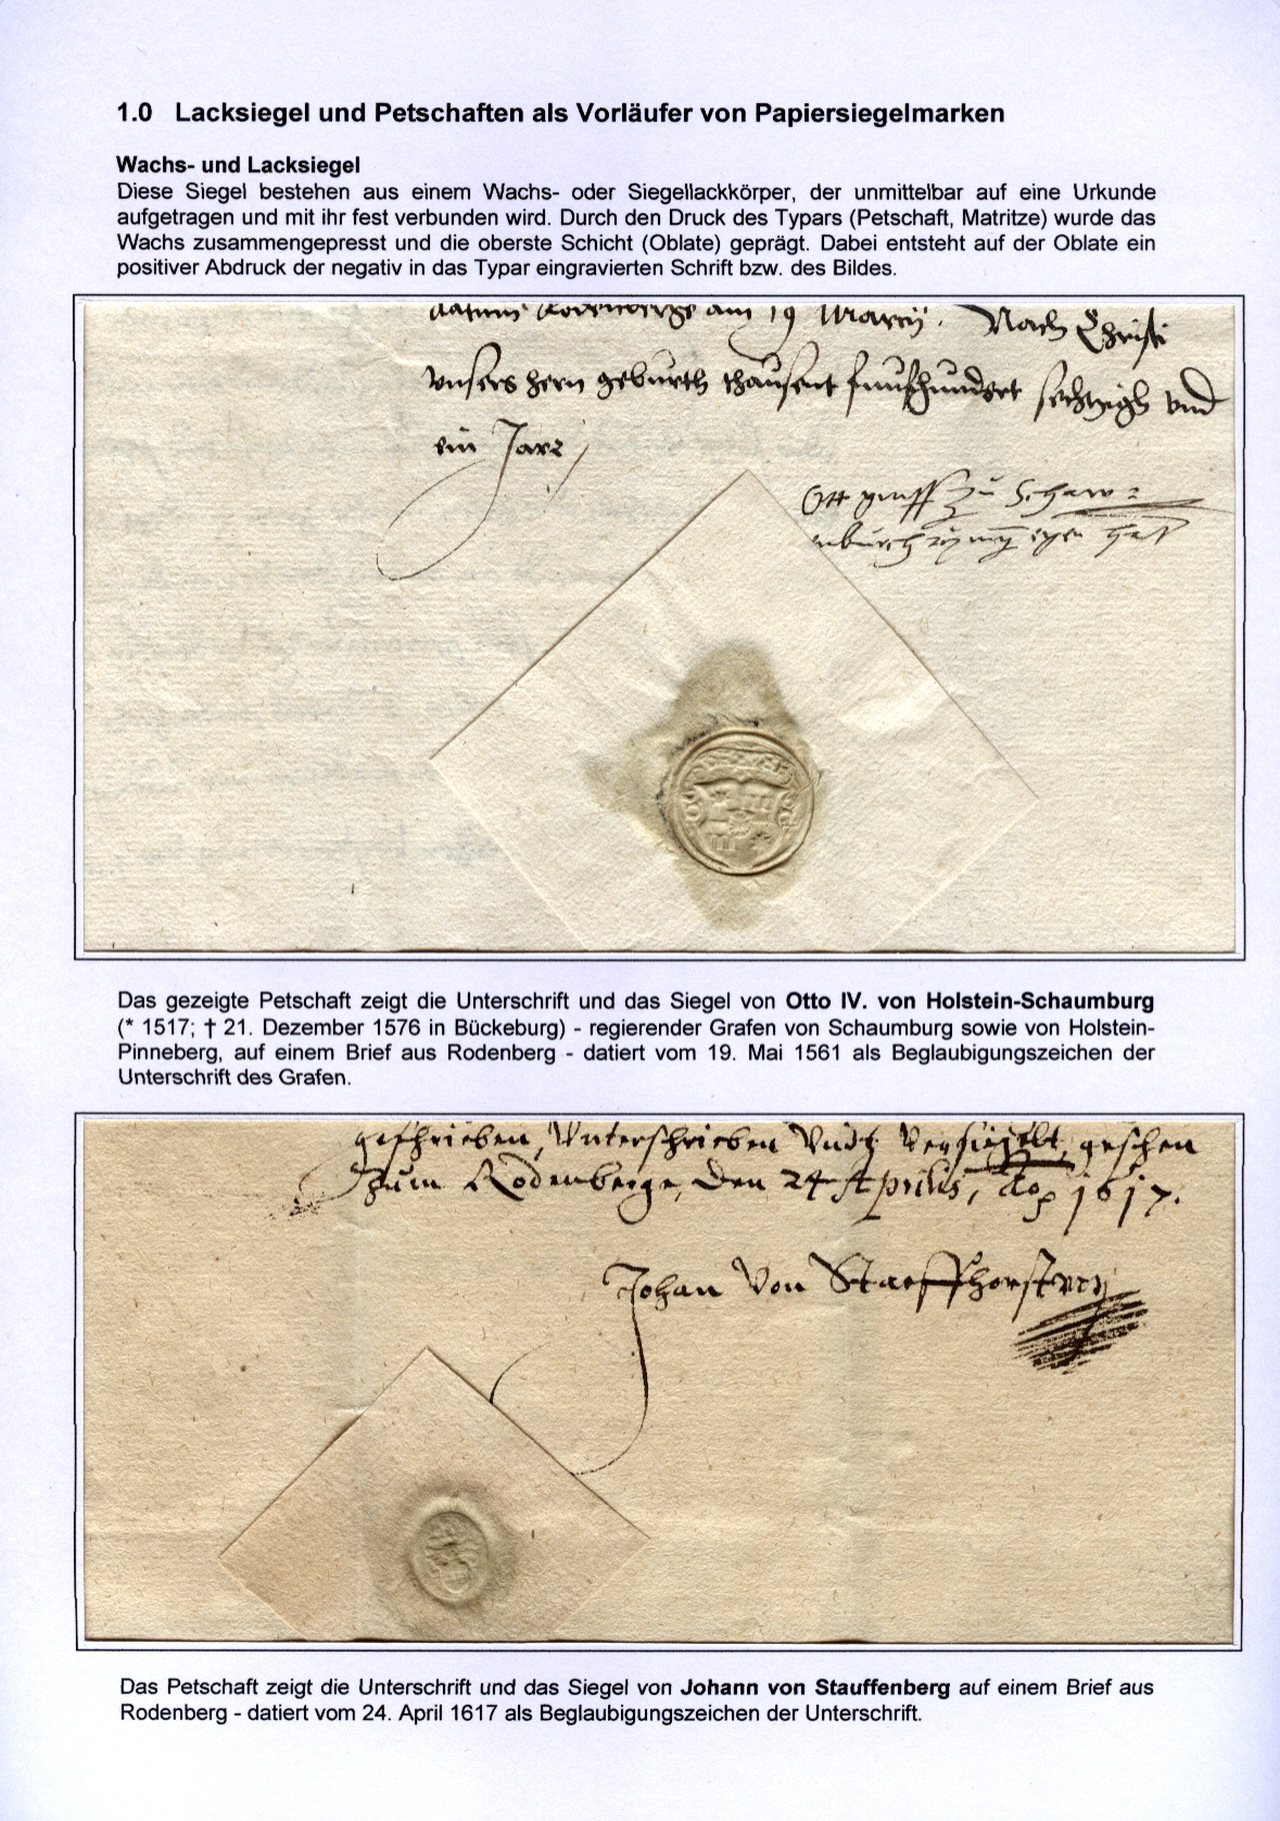 1.0 Lacksiegel und Petschaften als Vorläufer von Papiersiegelmarken
Wachs- und Lacksiegel
Diese Siegel bestehen aus einem Wachs- oder Siegellackkörper, der unmittelbar auf eine Urkunde
aufgetragen und mit ihr fest verbunden wird. Durch den Druck des Typars (Petschaft, Matritze) wurde das
Wachs zusammengepresst und die oberste Schicht (Oblate) geprägt. Dabei entsteht auf der Oblate ein
positiver Abdruck der negativ in das Typar eingravierten Schrift bzw. des Bildes.
datum Rodenberge am 19 Marcij. Nach Christi
unsers hern geburth thausent funfhundert sechtzigh und
ein Jare
Ott graff zu Schaw=
enburch mein eyen hant
Das gezeigte Petschaft zeigt die Unterschrift und das Siegel von Otto IV. von Holstein-Schaumburg
(* 1517; † 21. Dezember 1576 in Bückeburg) - regierender Grafen von Schaumburg sowie von Holstein-
Pinneberg, auf einem Brief aus Rodenberg - datiert vom 19. Mai 1561 als Beglaubigungszeichen der
Unterschrift des Grafen.
geschrieben, Unterschrieben Undt Versiegelt, geschen
Zum Rodenberge, den 24 Aprilis, Ao 1617.
Johan Von Staffhorst
Das Petschaft zeigt die Unterschrift und das Siegel von Johann von Stauffenberg auf einem Brief aus
Rodenberg - datiert vom 24. April 1617 als Beglaubigungszeichen der Unterschrift.